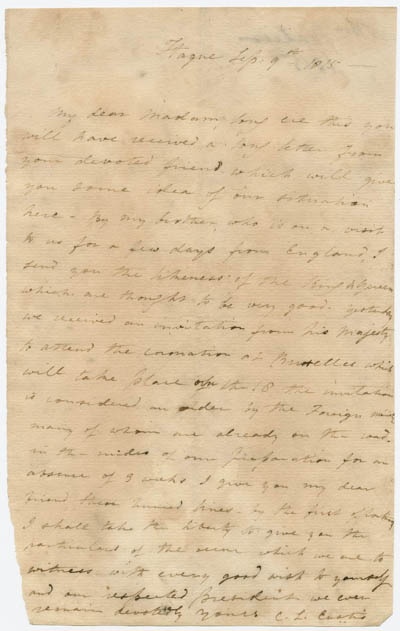 Hague Sep. 9th 1815 —
My dear Madam, long ere this you
will have received a long letter from
your devoted friend which will give
you some idea of our situation
here - By my brother, who is on a visit
to us for a few days from England, I
send you the likeness of the King & Queen
which are thought to be very good. yesterday
we received an invitation from his Majesty
to attend the coronation at Bruxelles which
will take place on the 18 the invitation
is considered an order by the Foreign
many of whom are already on the road.
in the midst of our preparation for an
absence of 3 weeks I give you my dear
friend these hurried lines - in the first of
I shall take the liberty to give you the
particulars of the scene which we are to
witness with every good wish to yourself
and our respected president we ever
remain devotedly yours C. L. Eustis